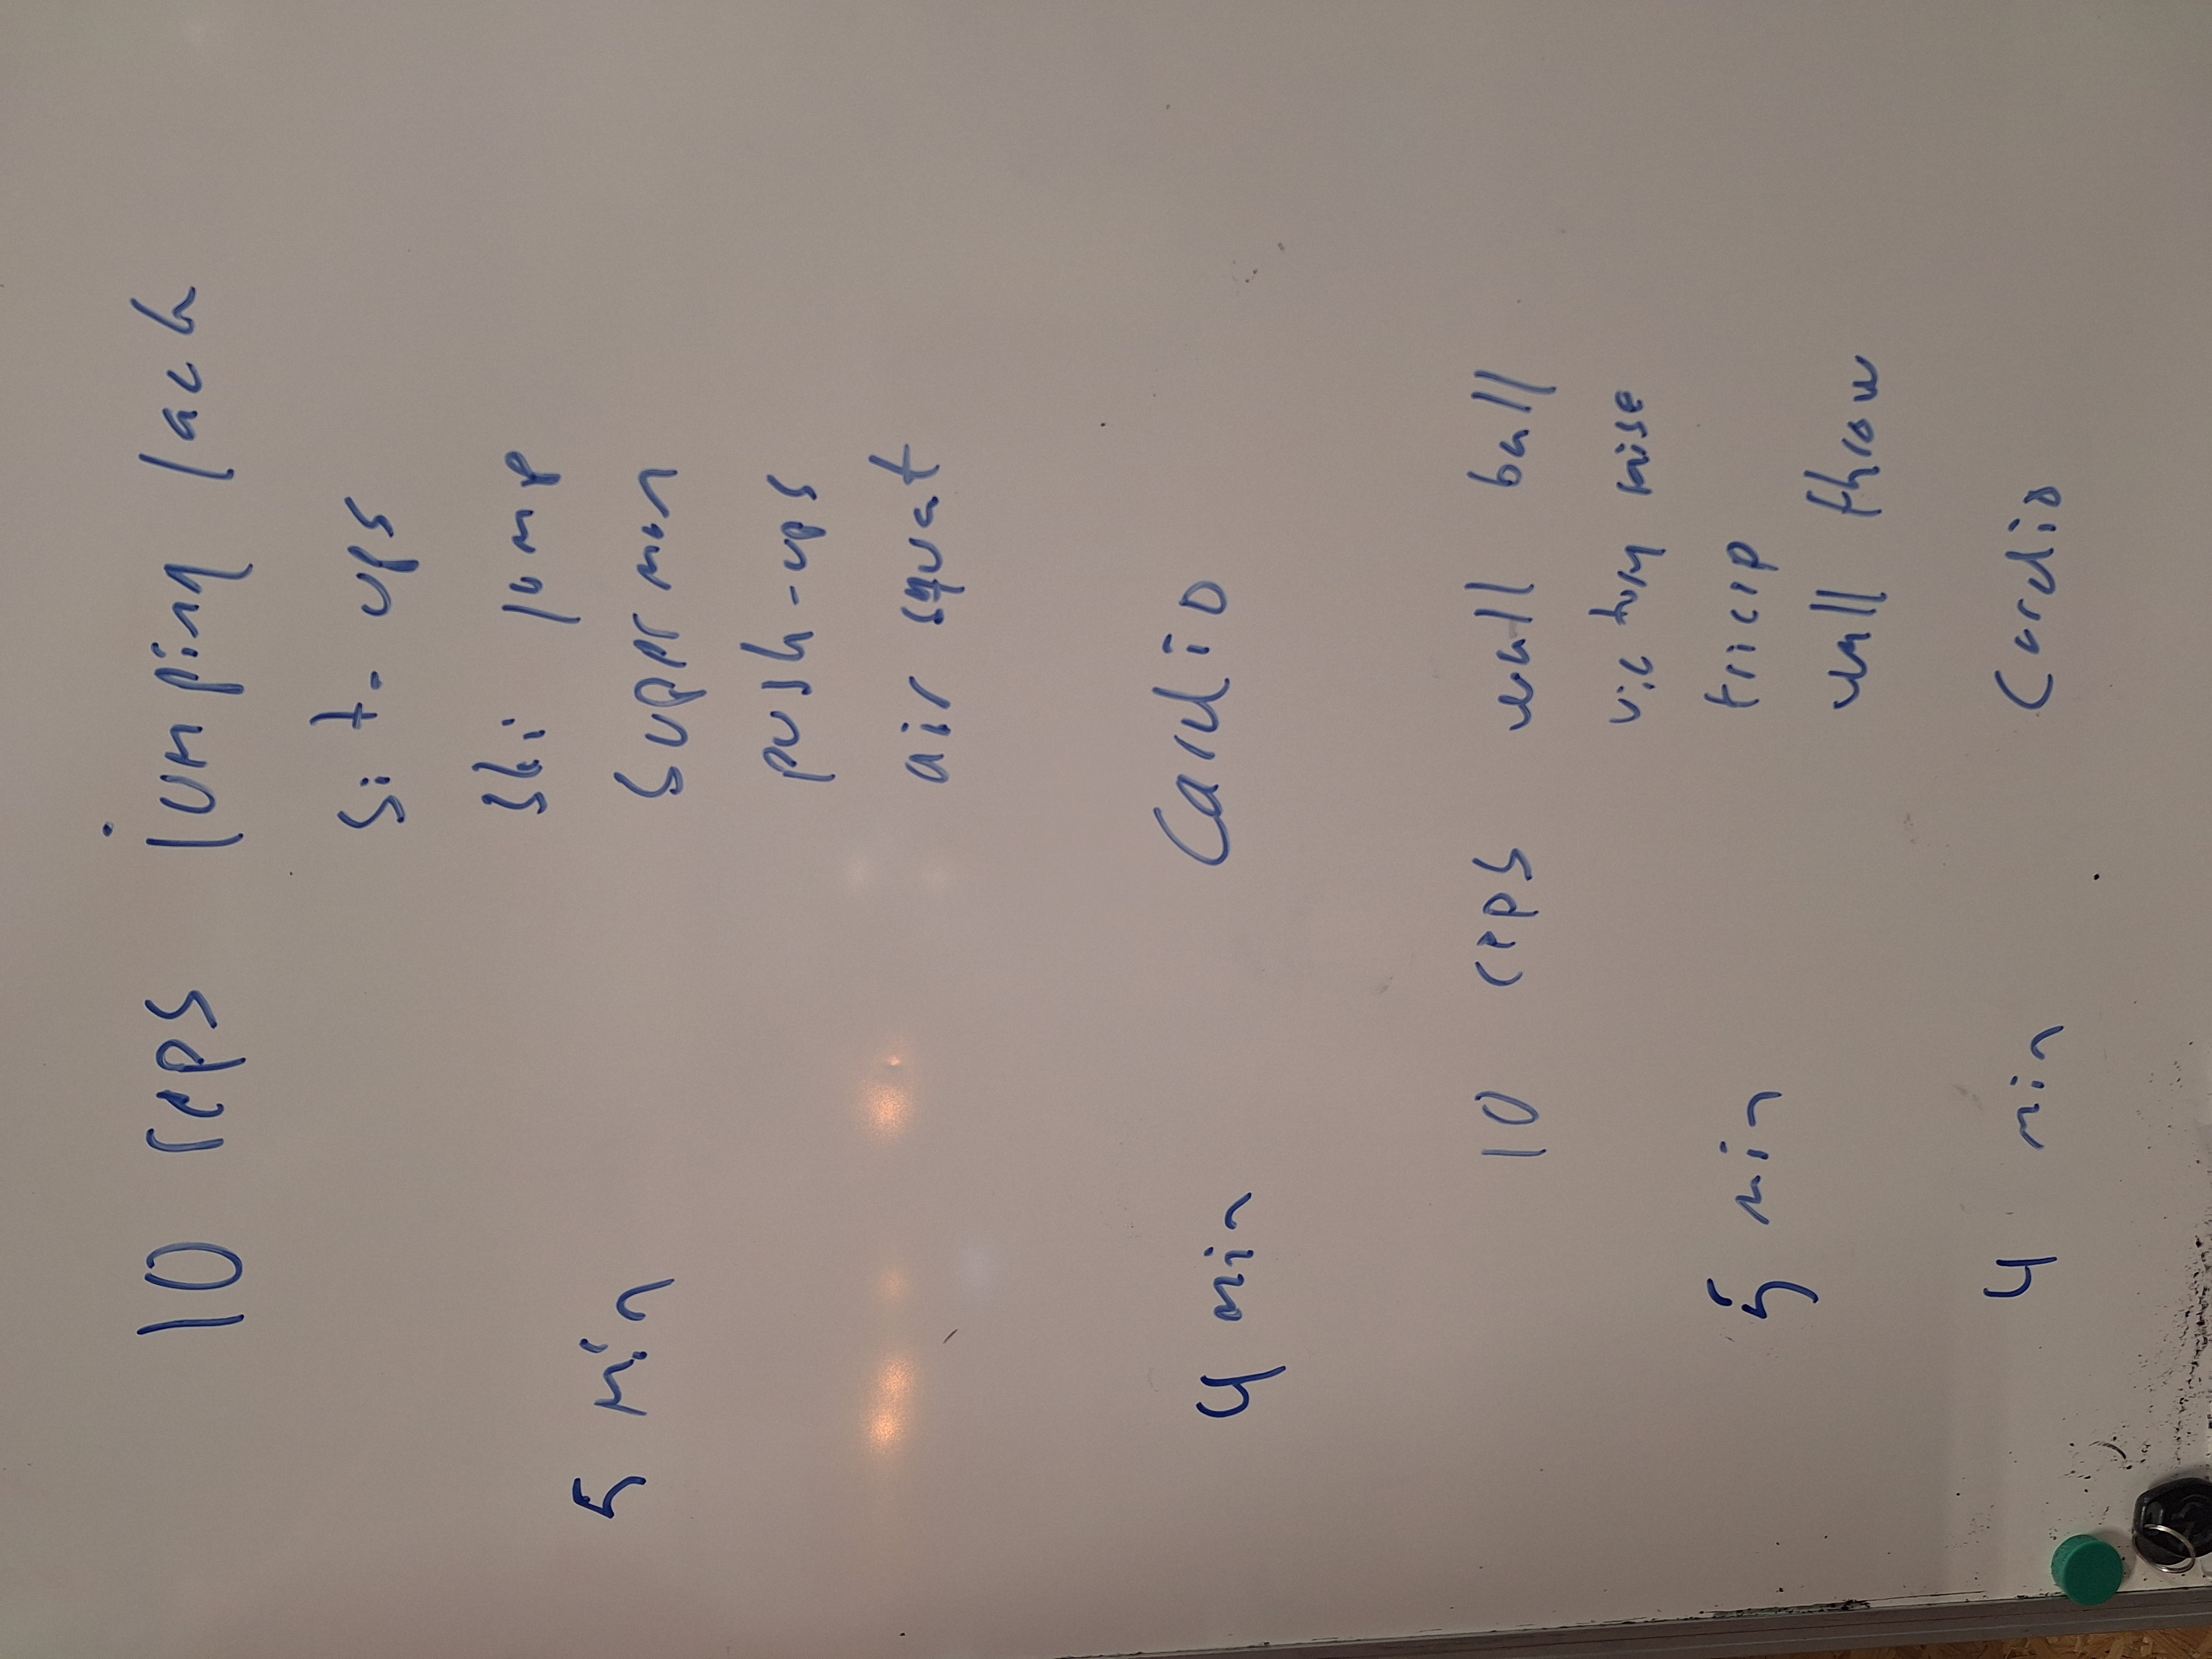 10 reps jumping jack
sit-ups
ski jump
superman
5 min
push-ups
air squat
4 min Cardio
10 reps wall ball
victory raise
5 min tricep
wall throw
4 min Cardio